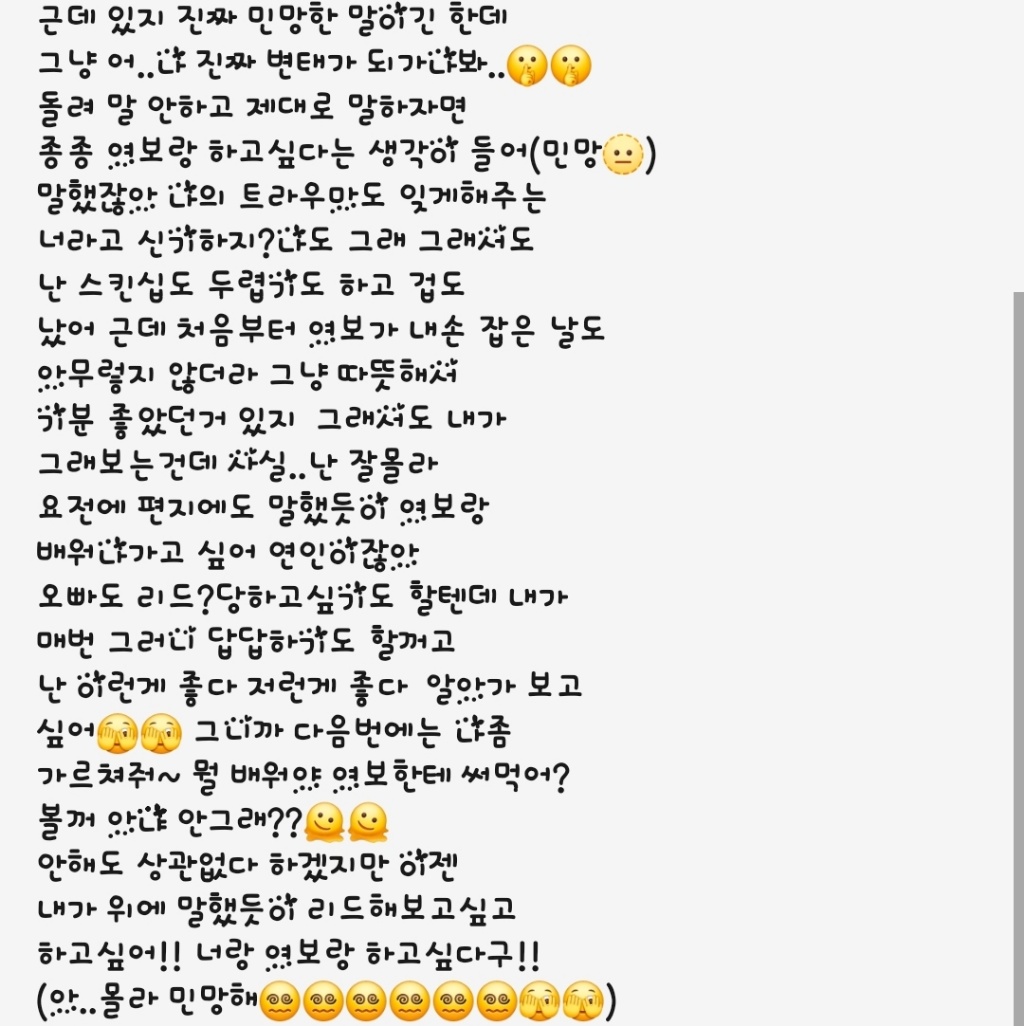 근데 있지 진짜 민망한 말이긴 한데
그냥 어..나 진짜 변태가 되가나봐..🤫🤫
돌려 말 안하고 제대로 말하자면
종종 여보랑 하고싶다는 생각이 들어(민망🫥)
말했잖아 나의 트라우마도 잊게해주는
너라고 신기하지?나도 그래 그래서도
난 스킨십도 두렵기도 하고 겁도
났어 근데 처음부터 여보가 내손 잡은 날도
아무렇지 않더라 그냥 따뜻해서
기분 좋았던거 있지 그래서도 내가
그래보는건데 사실..난 잘몰라
요전에 편지에도 말했듯이 여보랑
배워나가고 싶어 연인이잖아
오빠도 리드?당하고싶기도 할텐데 내가
매번 그러니 답답하기도 할꺼고
난 이런게 좋다 저런게 좋다 알아가 보고
싶어🫣🫣 그니까 다음번에는 나좀
가르쳐줘~ 뭘 배워야 여보한테 써먹어?
볼꺼 아냐 안그래??🫠🫠
안해도 상관없다 하겠지만 이젠
내가 위에 말했듯이 리드해보고싶고
하고싶어!! 너랑 여보랑 하고싶다구!!
(아..몰라 민망해😵‍💫😵‍💫😵‍💫😵‍💫😵‍💫😵‍💫🫣🫣)